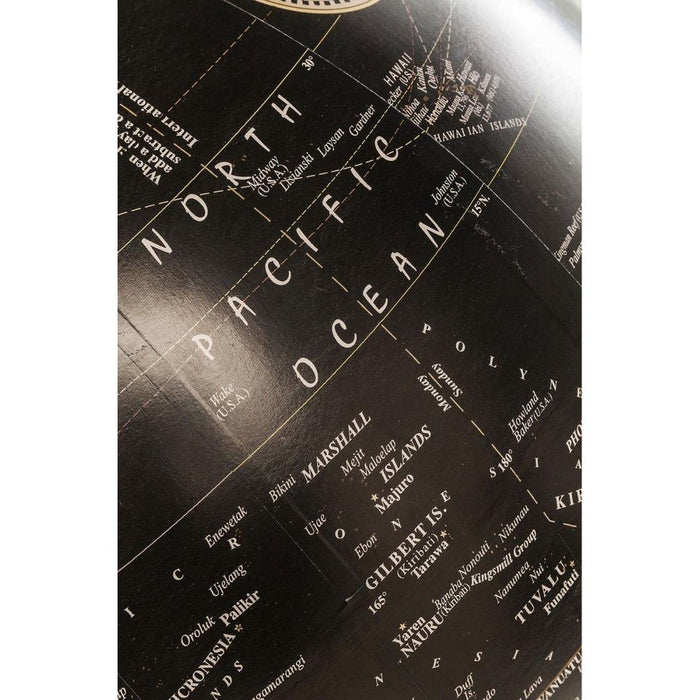 International
When
add a day
subtract a d
30°
NORTH
PACIFIC
OCEAN
Midway
(U.S.A.)
Lisianski
Laysan
Gardner
HAWAII
(U.S.
HAWAIIAN ISLANDS
Johnston
(U.S.A.)
15°N.
Kingman Reef
Wake
(U.S.A.)
POLYNE
Sunday
Monday
Howland
Baker (U.S.A.)
180°
S I A
PHO
KIR
MARSHALL
ISLANDS
Bikini
Mejit
Maloelap
Majuro
Enewetak
Ujae
Ebon
I C R O N E
Ujelang
Oroluk
Palikir
MICRONESIA
GILBERT IS.
(Kiribati)
Tarawa
165°
Banaba
(Kiribati)
Nonouti
Nikunau
Kingsmill Group
Yaren
NAURU
Nanumea
Nui
TUVALU
Funafuti
N D S
N E S I A
Duff
Is.
Lova
ANUATU